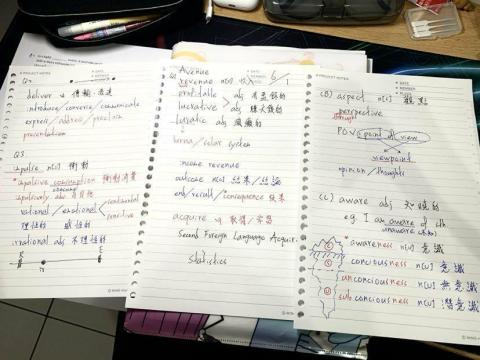 PROJECT NOTES
deliver → 傳輸、遞送
introduce/converse/communicate
express/address/preach
presentation
Q3
impulse n[c] 衝動
impulsive consumption 衝動消費
impulsively adv
rational/emotional/sentimental
理性的 感性的
irrational adj 不理性的
Avenue
revenue n[c] 收入
profitable adj
lucrative adj 賺錢的
lunatic adj 瘋癲的
lunar/solar system
income revenue
outcome n[c] 結果/結論
end/result/consequence 結果
acquire → 取得/學習
Second Foreign Language Acquir.
Statistics
PROJECT NOTES
(B) aspect n[c] 觀點
perspective
through
POV point of view
viewpoint
opinion/thoughts
(C) aware adj 知道的
e.g. I am aware of sth
unaware
awareness n[U] 意識
conciousness n[U] 意識
unconciousness n[U] 無意識
subconciousness n[U] 潛意識